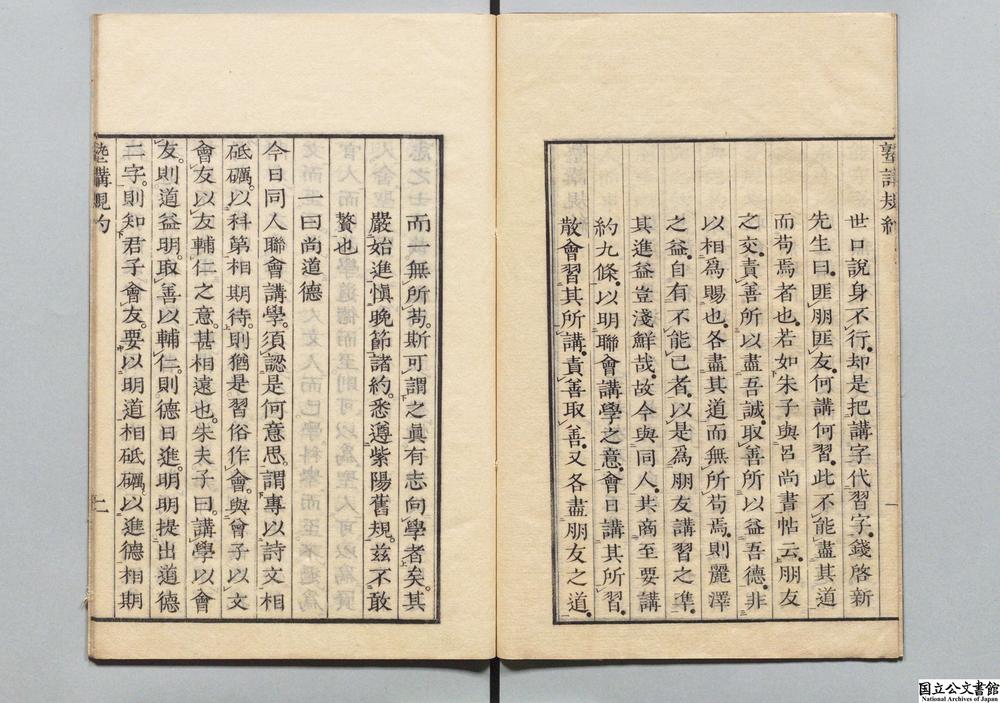 塾講規約
世口說身不行。却是把講字代習字。錢啓新
先生曰。匪朋匪友。何講何習。此不能盡其道
而苟焉者也。若如朱子與呂尚書帖云。朋友
之交。責善所以盡吾誠。取善所以益吾德。非
以相爲賜也。各盡其道而無所苟焉。則麗澤
之益。自有不能已者。以是爲朋友講習之準。
其進益豈淺鮮哉。故今與同人。其商至要講
約九條。以明聯會講學之意。會日講其所習。
散會習其所講。責善取善。又各盡朋友之道。
一
而一無所苟。斯可謂之眞有志向學者矣。其
嚴始進愼晩節諸約。悉遵紫陽舊規。茲不敢
贅也
一曰尚道德
今日同人聯會講學。須認是何意思。謂專以詩文相
砥礪。以科第相期待。則猶是習俗作會。與曾子以文
會友以友輔仁之意。甚相遠也。朱夫子曰。講學以會
友。則道益明。取善以輔仁。則德日進。明明提出道德
二字。則知君子會友。要以明道相砥礪。以進德相期
塾講規約
二
国立公文書館
National Archives of Japan